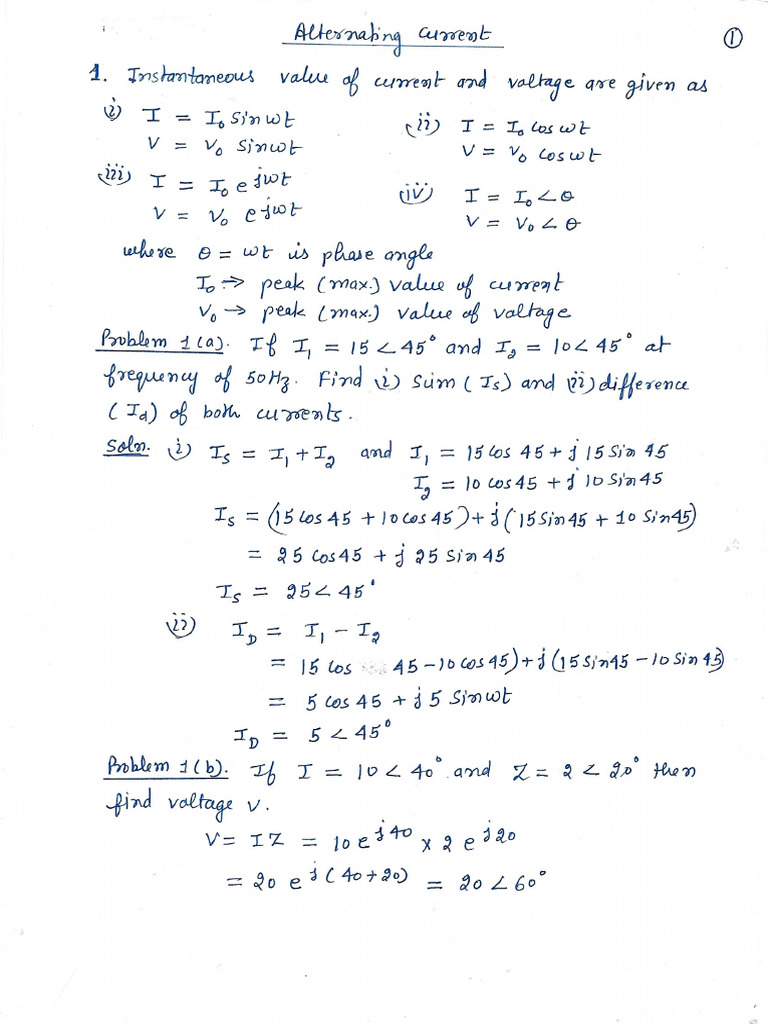 Alternating Current
①
1. Instantaneous value of current and voltage are given as
i) I = I₀ Sin wt
V = V₀ Sin wt
ii) I = I₀ Cos wt
V = V₀ Cos wt
iii) I = I₀ e^jwt
V = V₀ e^jwt
iv) I = I₀ ∠ θ
V = V₀ ∠ θ
where θ = wt is phase angle
I₀ → peak (max.) value of current
V₀ → peak (max.) value of voltage
Problem 1(a). If I₁ = 15 ∠ 45° and I₂ = 10 ∠ 45° at
frequency of 50Hz. Find i) Sum (Is) and ii) difference
(Id) of both currents.
Soln. i) Is = I₁ + I₂ and I₁ = 15 Cos 45 + j 15 Sin 45
I₂ = 10 cos 45 + j 10 Sin 45
Is = (15 Cos 45 + 10 cos 45) + j (15 Sin 45 + 10 Sin 45)
= 25 Cos 45 + j 25 Sin 45
Is = 25 ∠ 45°
ii) I_D = I₁ - I₂
= 15 Cos 45 - 10 Cos 45) + j (15 Sin 45 - 10 Sin 45)
= 5 Cos 45 + j 5 Sin wt
I_D = 5 ∠ 45°
Problem 1(b). If I = 10 ∠ 40° and Z = 2 ∠ 20° then
find voltage V.
V = I Z = 10 e^j40 x 2 e^j20
= 20 e^j(40+20) = 20 ∠ 60°